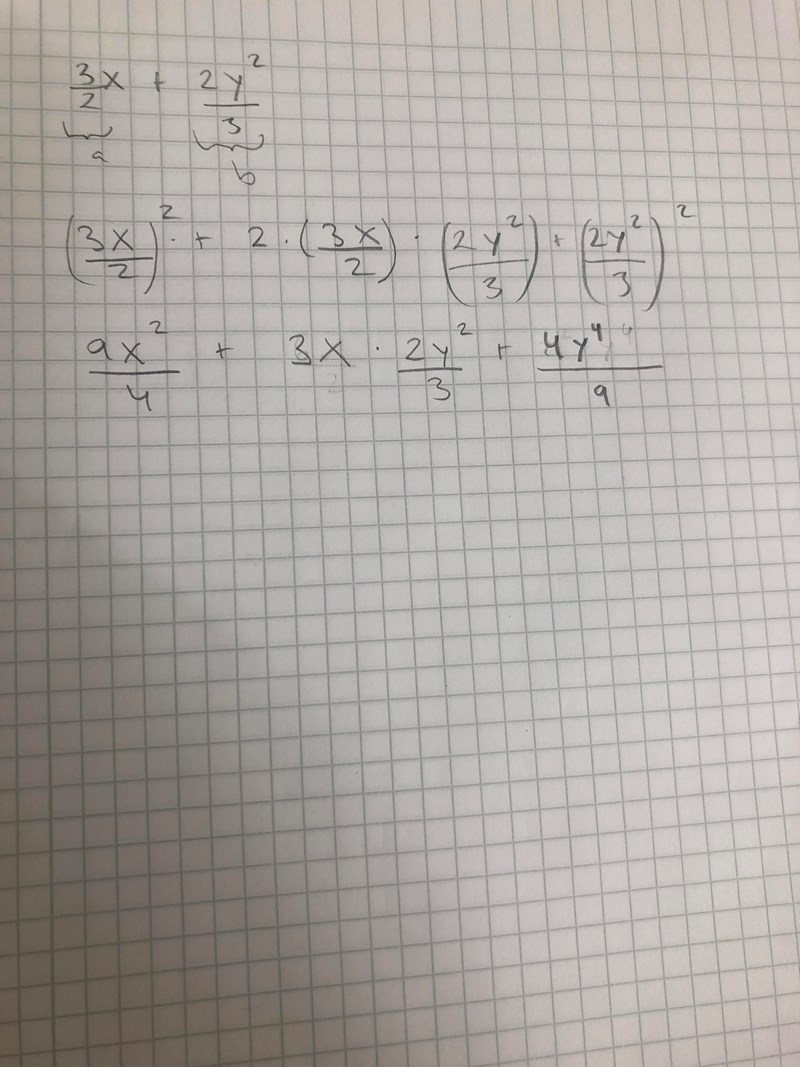 3/2 x + 2y²/3
a b
(3x/2)² · + 2 · (3x/2) · (2y²/3) + (2y²/3)²
9x²/4 + 3x · 2y²/3 + 4y⁴/9